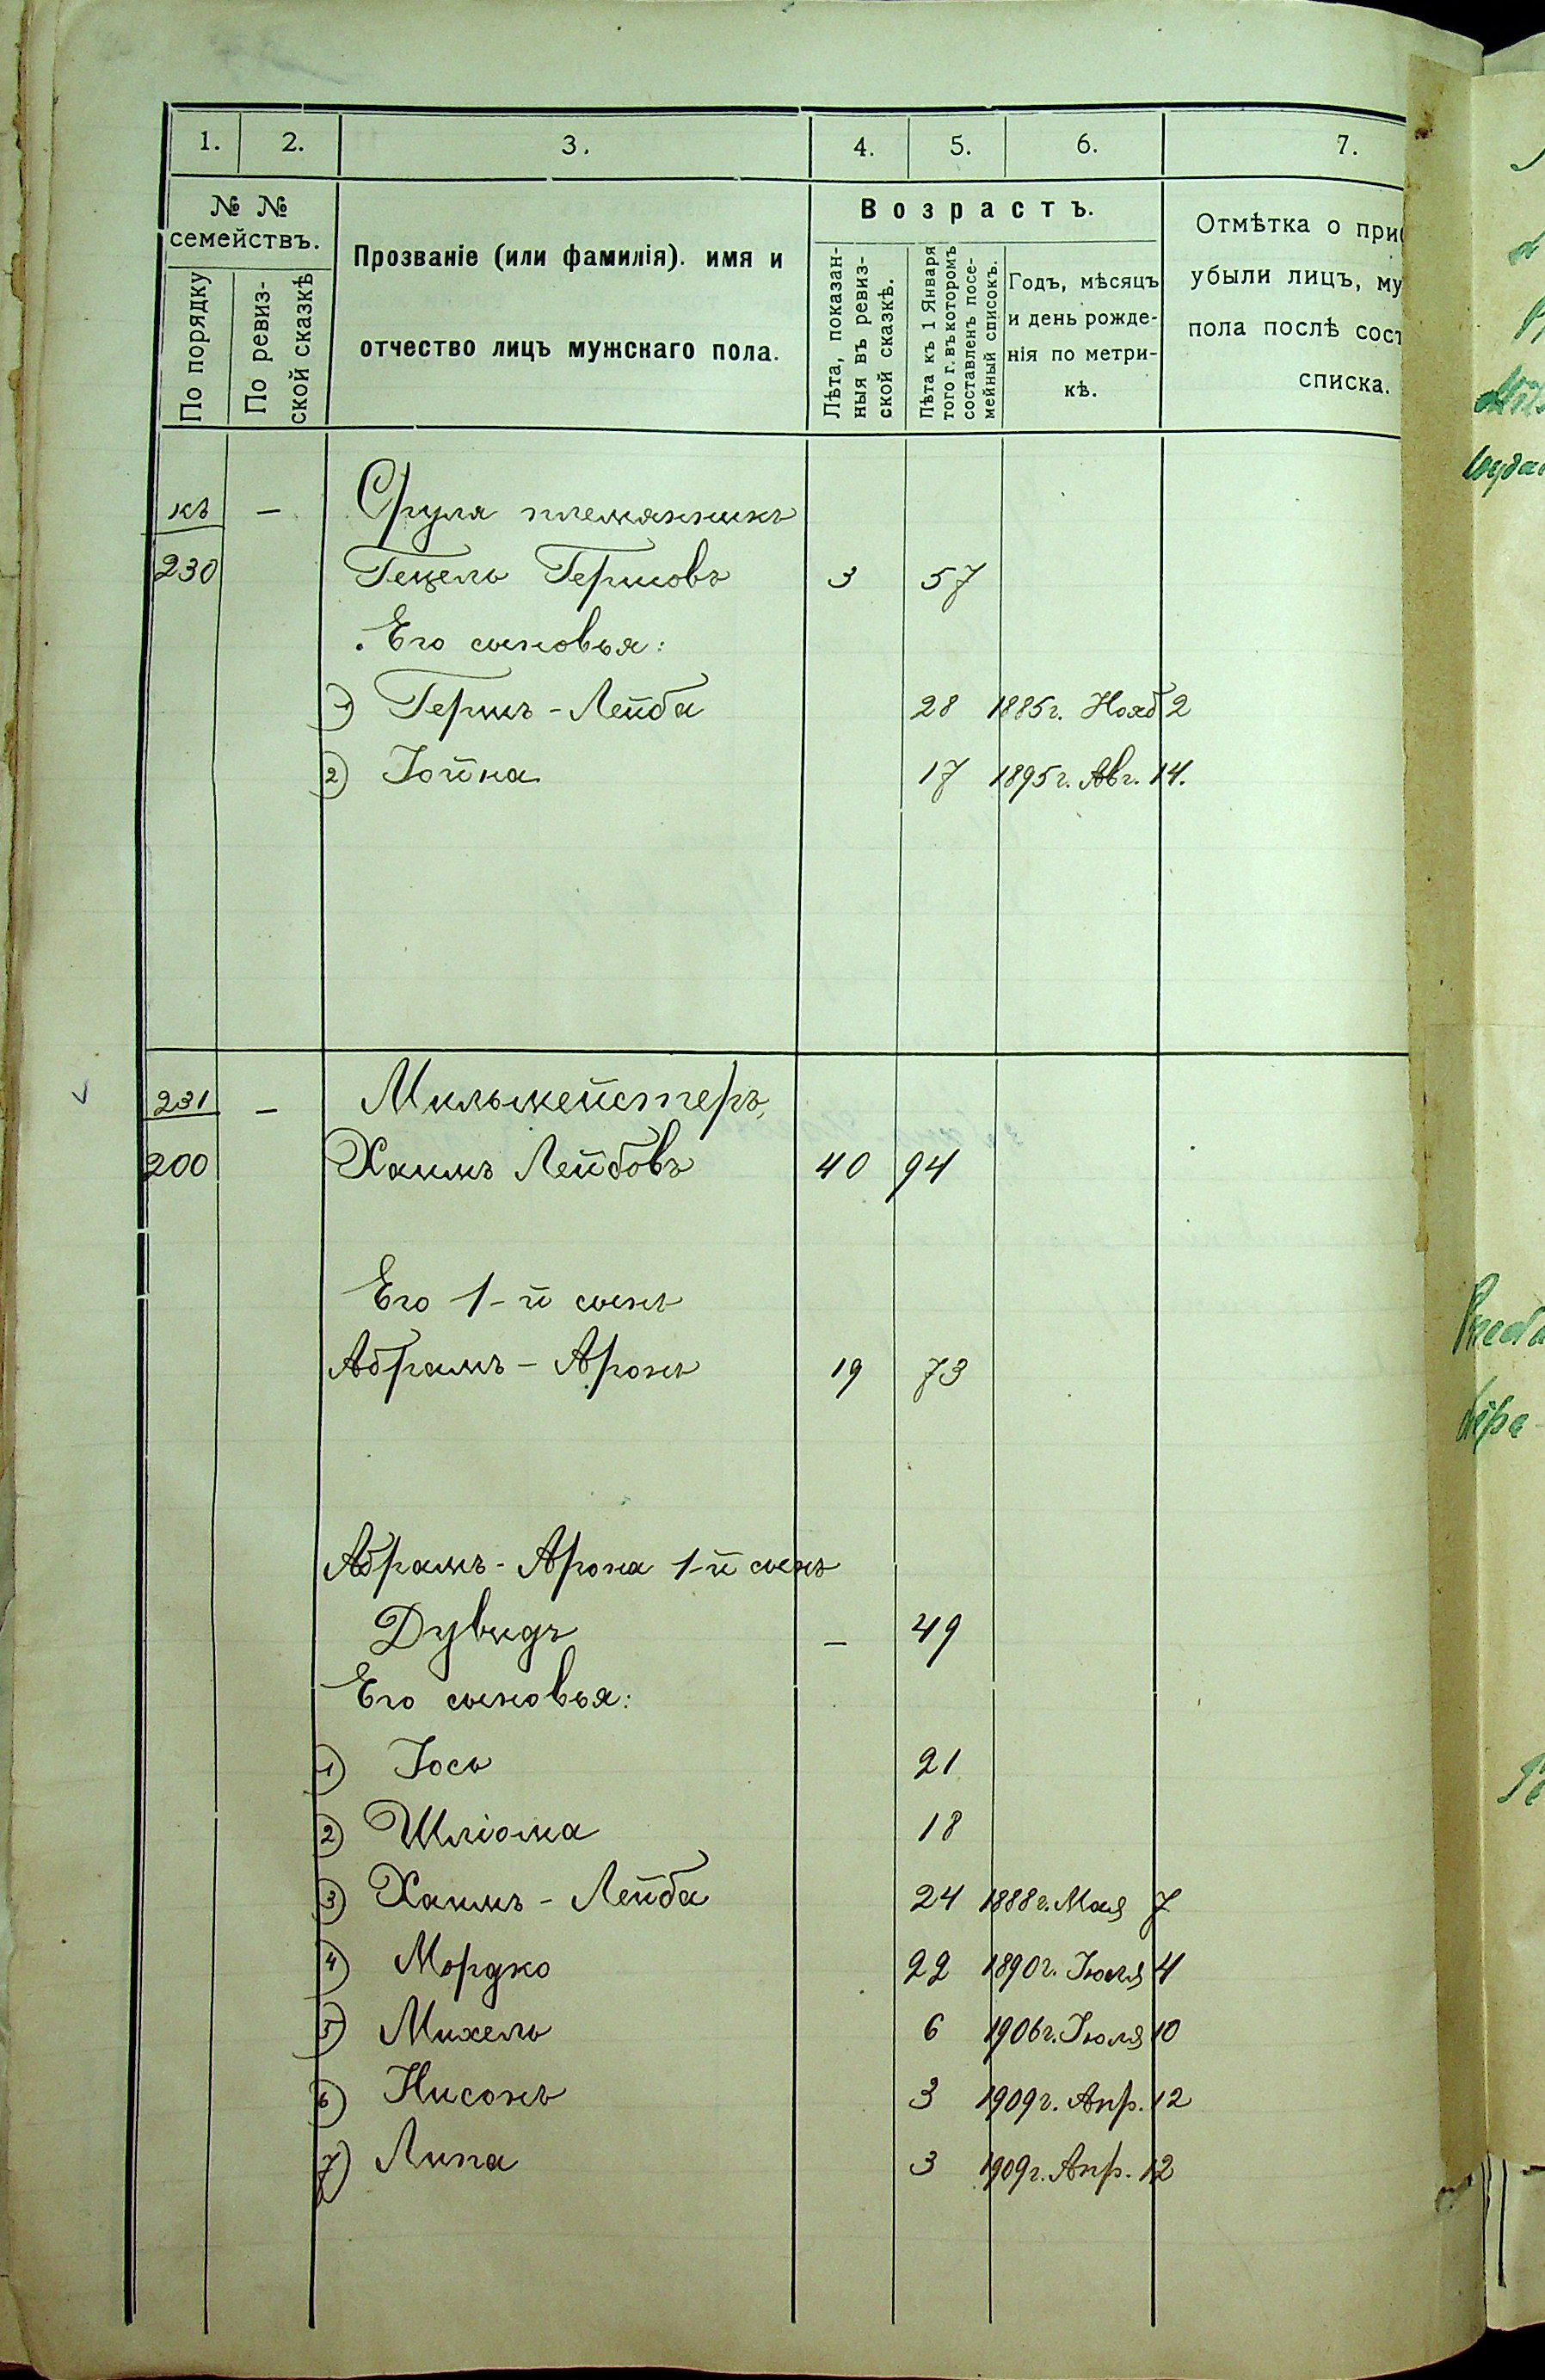 1. 2. 3. 4. 5. 6. 7.
№ № семействъ.
По порядку
По ревиз-
ской сказкѣ
Прозваніе (или фамилія). имя и
отчество лицъ мужскаго пола.
Возрастъ.
Лѣта, показан-
ныя въ ревиз-
ской сказкѣ.
Лѣта къ 1 Января
того г. въ которомъ
составленъ посе-
мейный списокъ.
Годъ, мѣсяцъ
и день рожде-
нія по метри-
кѣ.
Отмѣтка о при
убыли лицъ, му
пола послѣ сост
списка.
къ — Сруля племянникъ
230 Гецель Гершовъ 3 57
Его сыновья:
1) Гершъ-Лейба 28 1885г. Нояб 2
2) Іойна 17 1895г. Авг. 14.
231 — Мильмейстеръ,
200 Хаимъ Лейбовъ 40 94
Его 1-й сынъ
Абрамъ-Аронъ 19 73
Абрамъ-Арона 1-й сынъ
Дувидъ — 49
Его сыновья:
1) Іось 21
2) Шліома 18
3) Хаимъ-Лейба 24 1888г. Мая 7
4) Мордко 22 1890г. Іюля 4
5) Михель 6 1906г. Іюля 10
6) Нисонъ 3 1909г. Апр. 12
7) Липа 3 1909г. Апр. 12